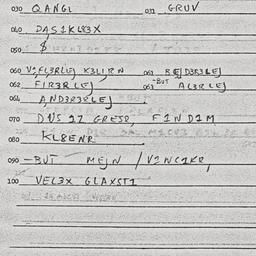 030 QANGL 031 GRUV
040 DAS1KL83X
050 $
060 V2FL3RLEJ K3LIRN 061 BEJD3R3LEJ
062 FIR3RLEJ -BUT 063 AL3RLEJ
064 AND3R3RLEJ
070 DNS 1Z GRESR, F1ND1M
080 KL8ENR
090 -BUT MEJN / V2NC1KR,
100 VEL3X GLAXST1